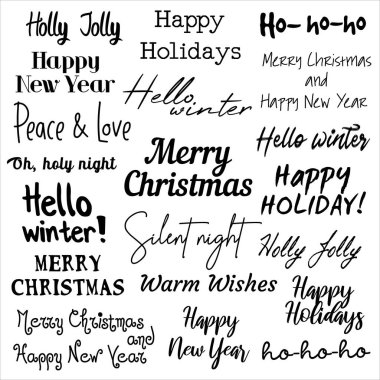 Holly Jolly
Happy
New Year
Peace & Love
Oh, holy night
Hello
winter!
MERRY
CHRISTMAS
Merry Christmas
and
Happy New Year
Happy
Holidays
Hello,
winter
Merry
Christmas
Silent night
Warm Wishes
Happy
New Year
Ho-ho-ho
Merry Christmas
and
Happy New Year
Hello winter
HAPPY
HOLIDAY!
Holly Jolly
Happy
Holidays
ho-ho-ho